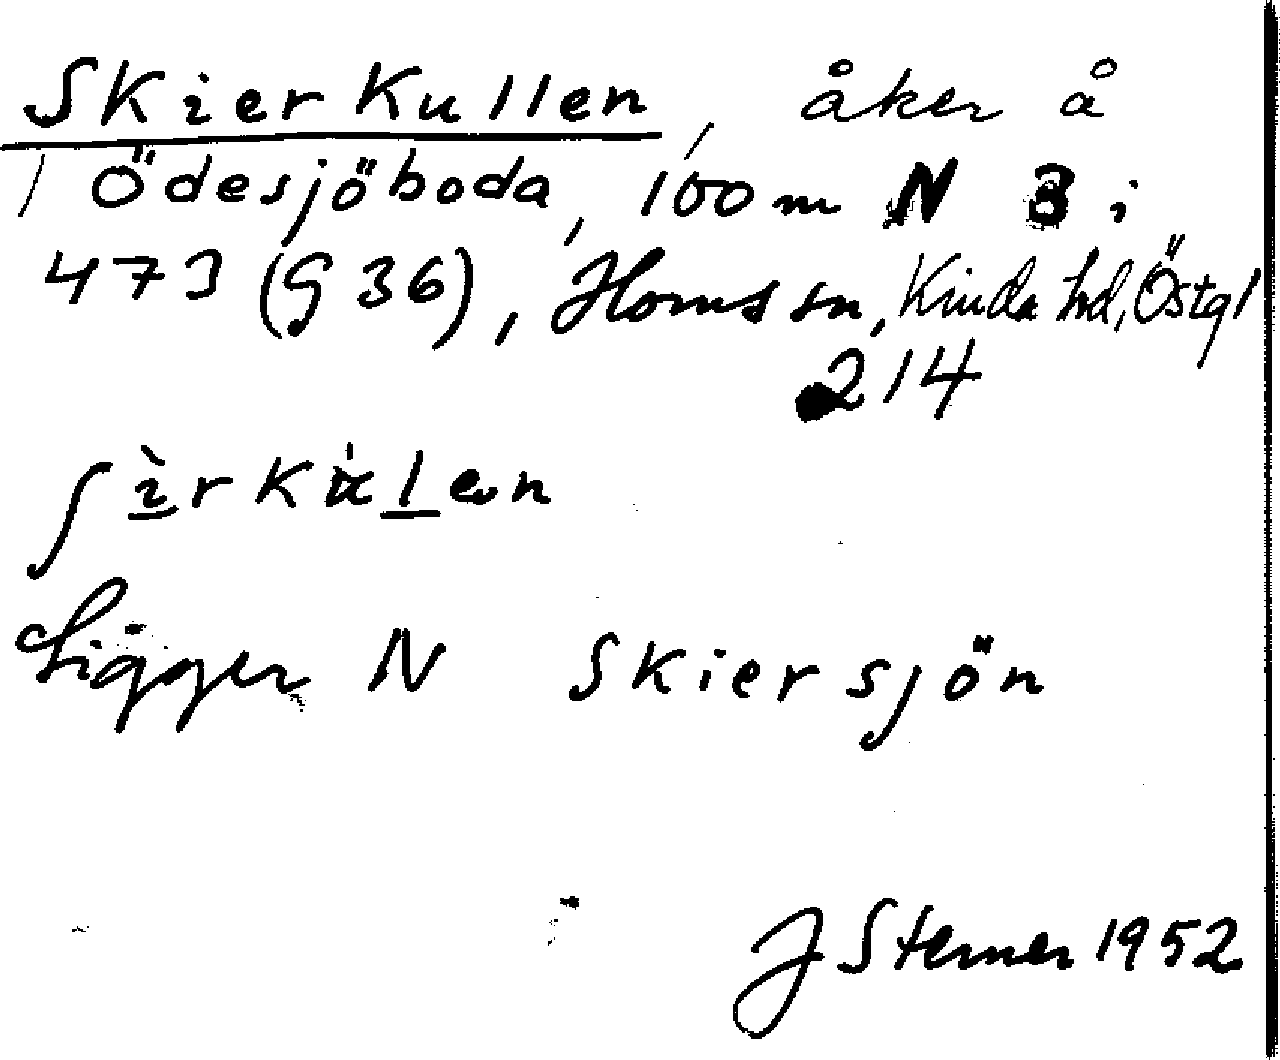 Skierkullen, åker å
1 Ödesjöboda, 100 m N 3 i
473 (G 36), Horns sn, Kinda hd, Östgl
214
Ligger N Skiersjön
J Sterner 1952